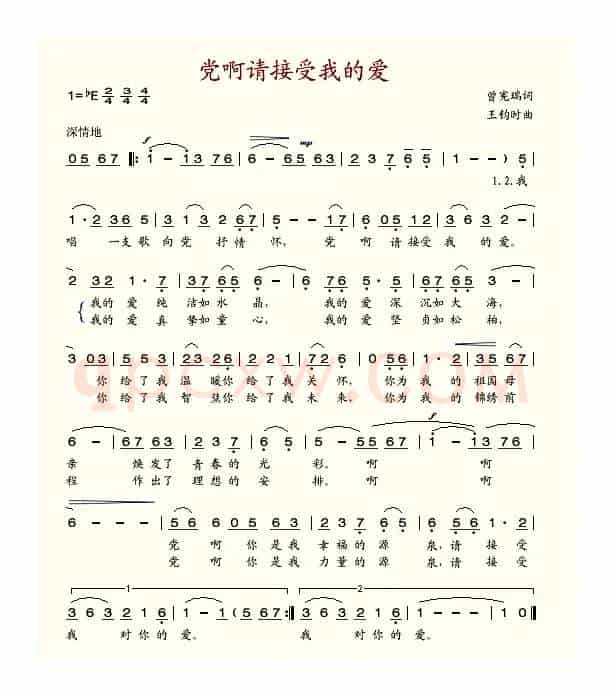 党啊请接受我的爱
1=♭E 2/4 3/4 4/4
曾宪瑞词
王钧时曲
深情地
f mp
05 67 ‖: 1 - 13 76 | 6 - 65 63 | 2 37 6 5 | 1 - - ) 5 |
1.2.我
1 · 2 36 5 | 6 7 3 2 67 | 5 - - 17 | 6 05 12 | 3 6 2 - |
唱 一支歌向党 抒情怀， 党 啊请接受我 的爱。
2 32 1 · 7 | 37 65 5 - | 6 76 5 · 5 | 27 65 6 - |
我的爱纯 洁如水 晶， 我的爱深 沉如大 海，
我的爱真 挚如童 心， 我的爱坚 贞如松 柏，
3 03 | 5 53 | 23 26 | 2 21 | 72 6 | 0 56 | 1 · 2 | 35 67 |
你给了我温暖你给了我关怀， 你为我的祖国母
你给了我智慧你给了我未来， 你为我的锦绣前
6 - | 67 63 | 2 37 | 6 56 | 5 - | 5 56 67 | 1 - 13 76 |
f
亲 焕发了青春的光 彩。啊 啊
程 作出了理想的安 排。啊 啊
6 - - - | 56 6 05 63 | 2 37 6 5 | 6 56 1 · 2 |
党 啊你是我幸福的源 泉，请接受
党 啊你是我力量的源 泉，请接受
1 2
3 63 2 16 | 1 - 1 ( 5 67 :‖ 3 63 2 16 | 1 - - - | 1 0 ‖
我 对你的 爱。 我 对你的 爱。
qpoxw.COM